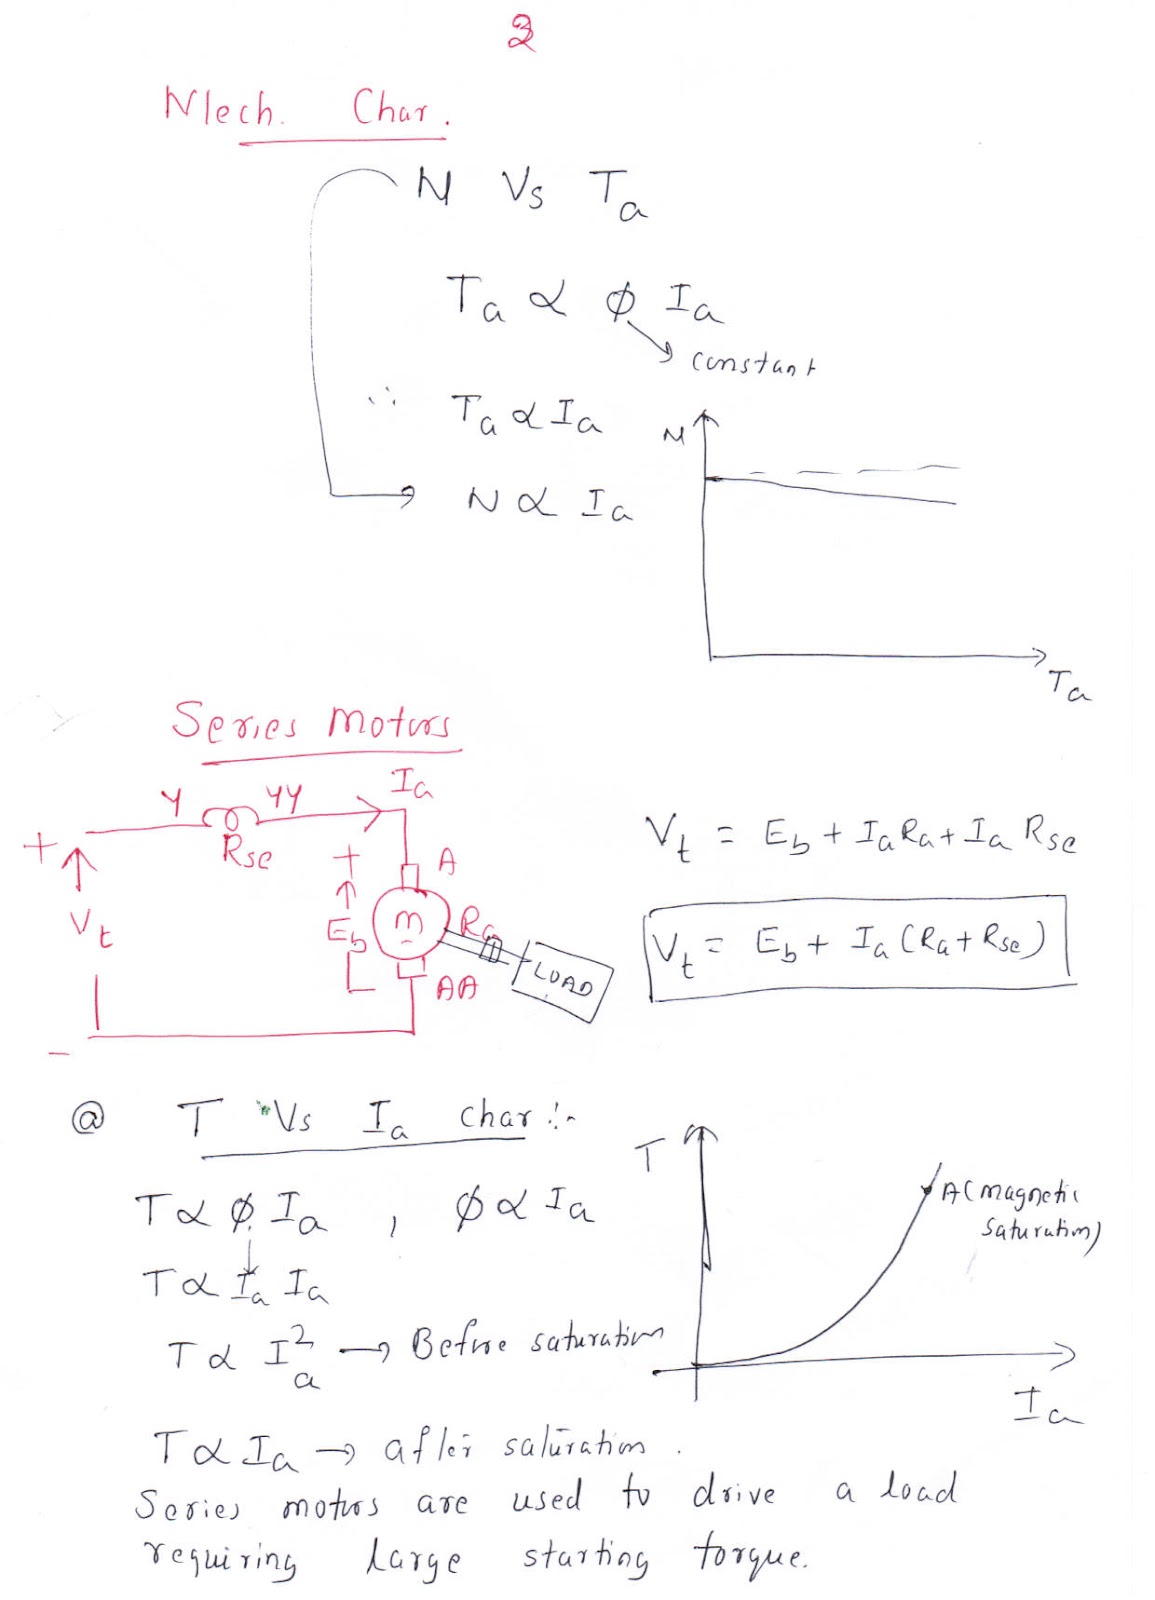 3
Mech. Char.
N Vs Ta
Ta ∝ ϕ Ia
constant
∴ Ta ∝ Ia
N ∝ Ia
N
Ta
Series Motors
Y YY Ia
+ Rse + A
Vt Eb m Ra
LOAD
AA
-
Vt = Eb + IaRa + Ia Rse
Vt = Eb + Ia (Ra + Rse)
@ T Vs Ia char :-
T ∝ ϕ Ia , ϕ ∝ Ia
T ∝ Ia Ia
T ∝ Ia² → Before saturation
T
A (magnetic
saturation)
Ia
T ∝ Ia → after saturation.
Series motors are used to drive a load
requiring large starting torque.